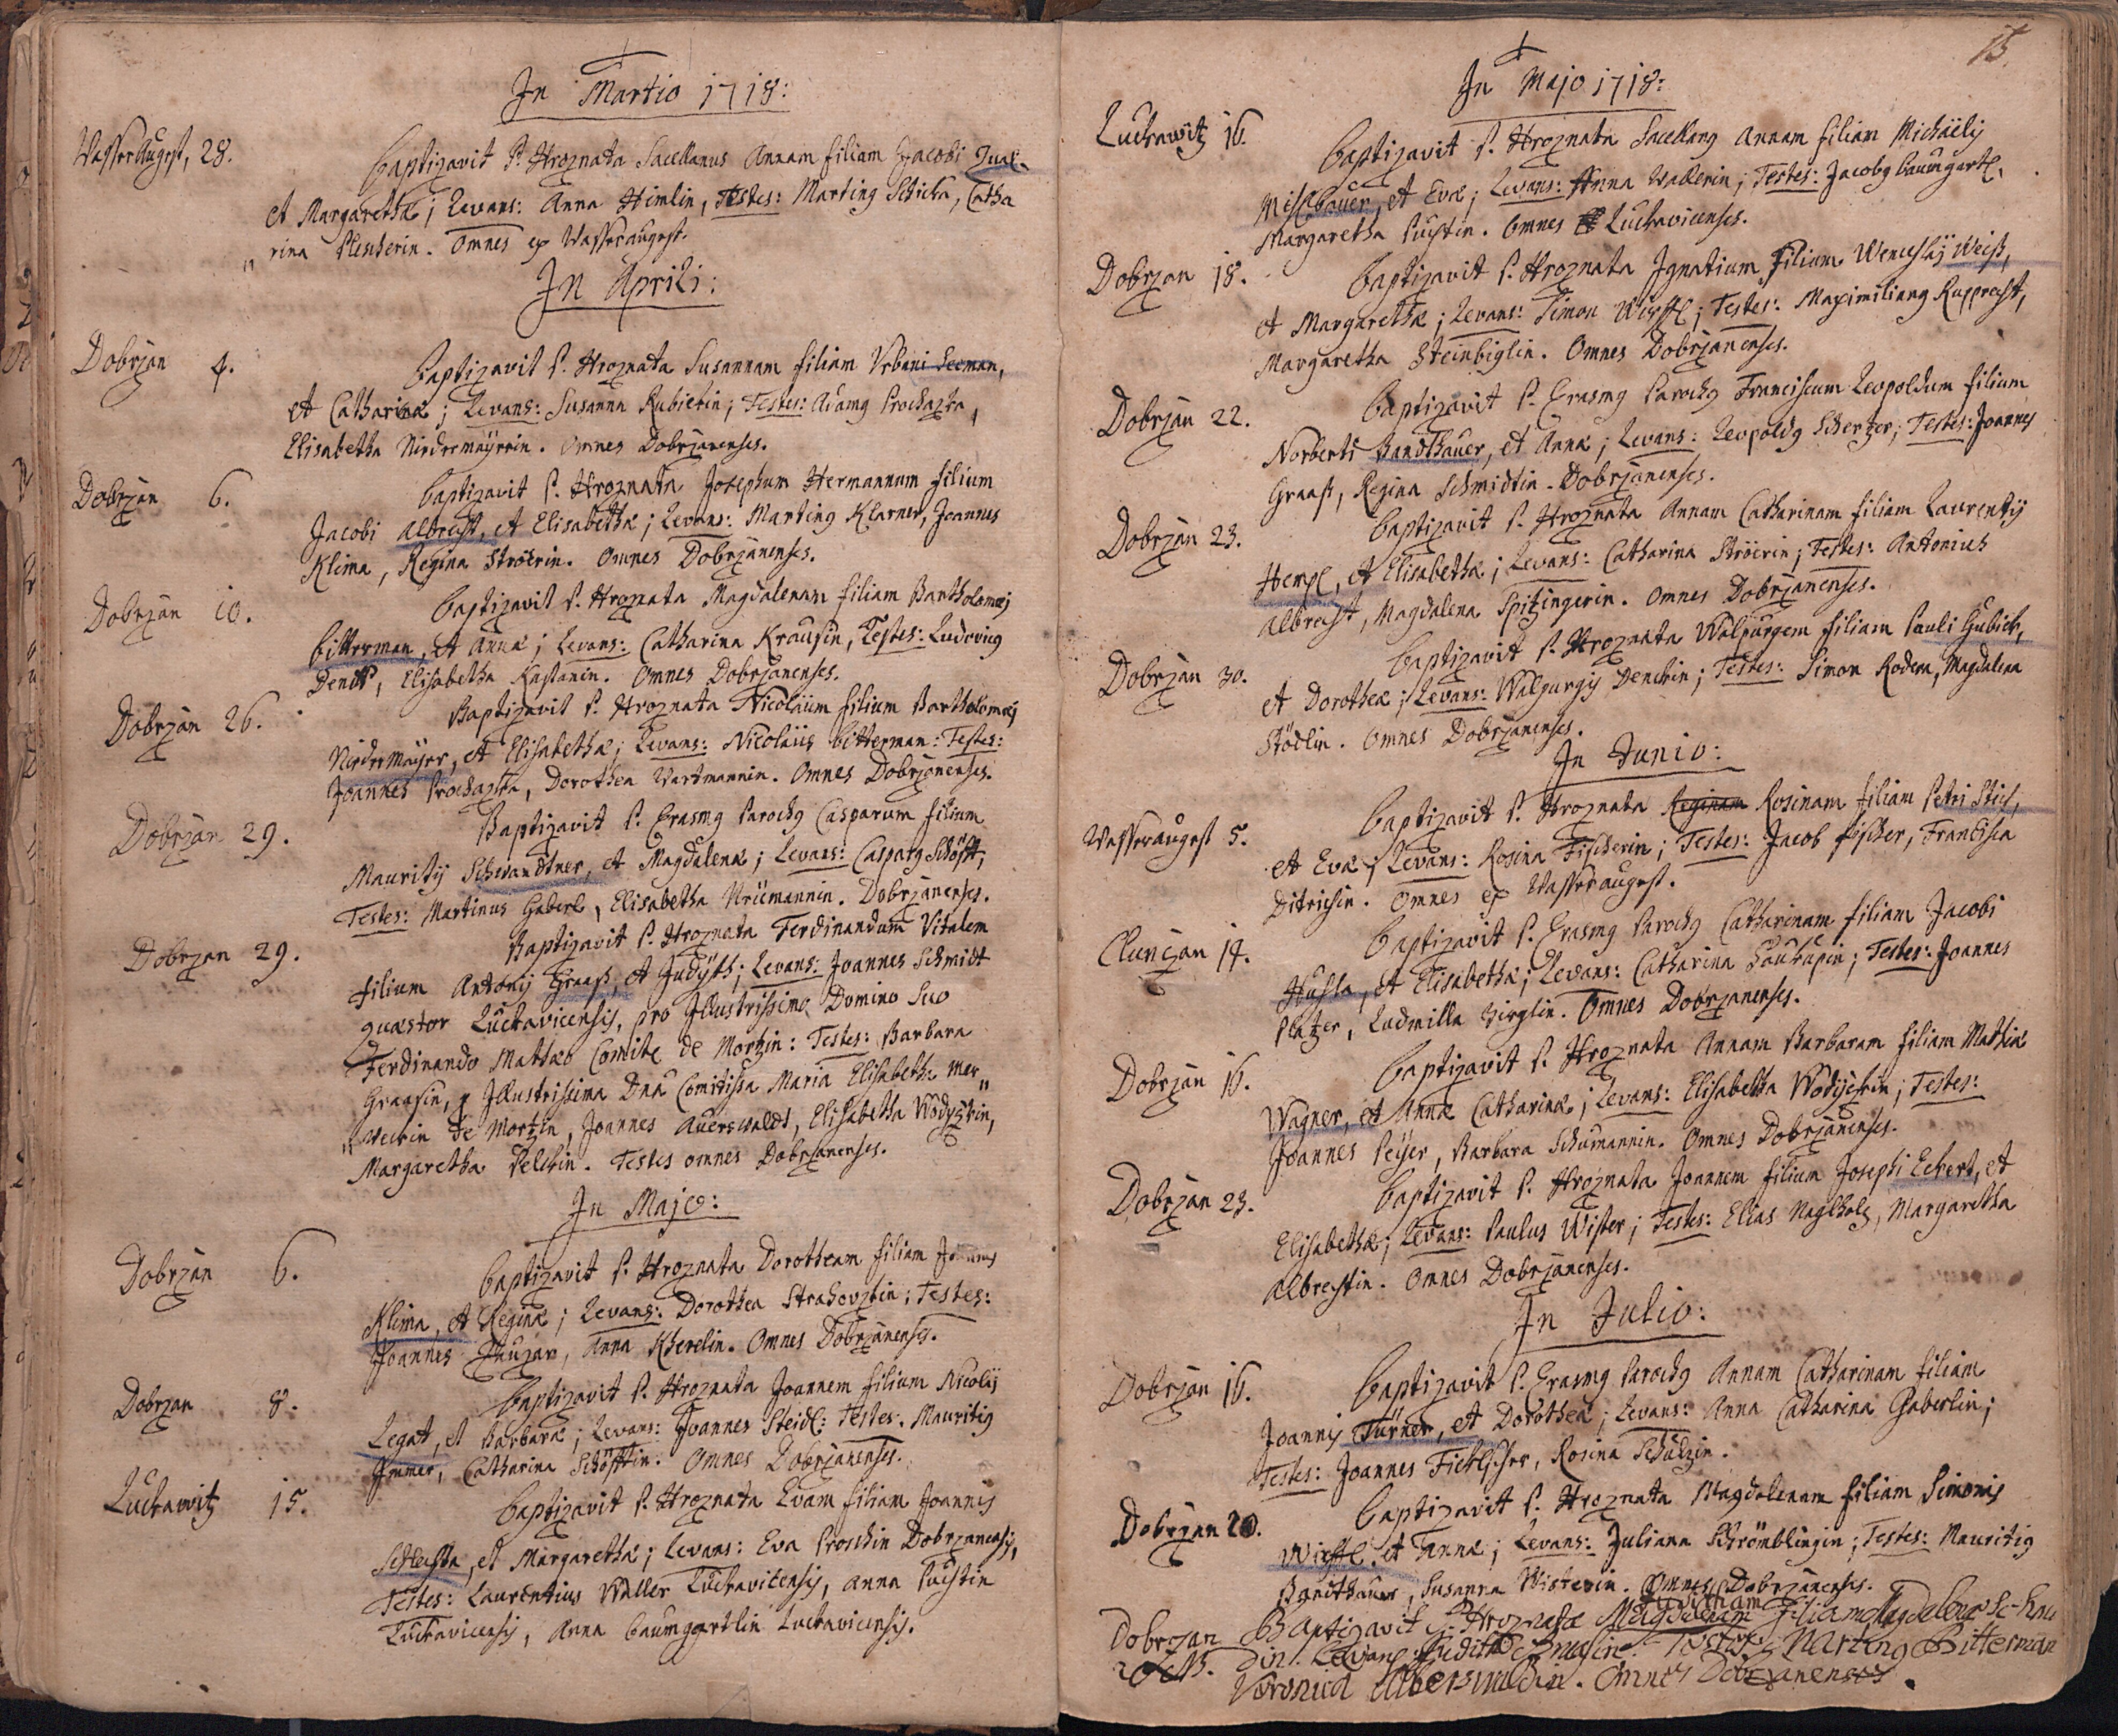 In Martio 1718:
Wasseraugest, 28. Baptizavit P. Hroznata Sacellanus Annam filiam Jacobi
et Margarethæ; Levans: Anna Himlin, Testes: Marting Schicka, Catha
rina Plescherin. Omnes ex Wasseraugest.
In Aprili:
Dobrzan 4. Baptizavit P. Hroznata Susannam filiam Urbani Seeman,
et Catharinæ; Levans: Susanna Kubickin; Testes: Adamg Prochazka,
Elisabetha Niedermäyrin. Omnes Dobrzanenses.
Dobrzan 6. Baptizavit P. Hroznata Josephum Hermannum filium
Jacobi Albrecht, et Elisabethæ; Levans: Marting Klarner, Joannes
Klima, Regina Ströerin. Omnes Dobrzanenses.
Dobrzan 10. Baptizavit P. Hroznata Magdalenam filiam Bartholomæj
Bitterman, et Annæ; Levans: Catharina Krausin, Testes: Ludovicg
Denck, Elisabetha Kastanin. Omnes Dobrzanenses.
Dobrzan 26. Baptizavit P. Hroznata Nicolaum filium Bartholomæj
Niedermäyer, et Elisabethæ; Levans: Nicolaus Bitterman: Testes:
Joannes Prochazka, Dorothea Wartmannin. Omnes Dobrzanenses.
Dobrzan 29. Baptizavit P. Erasmg Parochg Casparum filium
Mauritij Schwandtner, et Magdalenæ; Levans: Casparg Schöfft,
Testes: Martinus Gaberl, Elisabetha Neümannin. Dobrzanenses.
Dobrzan 29. Baptizavit P. Hroznata Ferdinandum Vitalem
filium Antonij Graass, et Judÿth; Levans: Joannes Schmidt
quæstor Luckavicensis, pro Illustrissimo Domino Suo
Ferdinando Matthæo Comite de Mortzin: Testes: Barbara
Graasin, p Illustrissima Dna Comitissa Maria Elisabetha Mar„
„wecin de Mortzin, Joannes Auerswaldt, Elisabetha Wodyczkin,
Margaretha Pelckin. Testes omnes Dobrzanenses.
In Majo:
Dobrzan 6. Baptizavit P. Hroznata Dorotheam filiam
Klima, et Reginæ; Levans: Dorothea Strahovzkin; Testes:
Joannes Anna Kherelin. Omnes Dobrzanenses.
Dobrzan 8. Baptizavit P. Hroznata Joannem filium Nicolai
Legat, et Barbaræ; Levans: Joannes Steidl: Testes: Mauritig
Immer, Catharina Schöfftin. Omnes Dobrzanenses.
Luckawitz 15. Baptizavit P. Hroznata Evam filiam Joannis
et Margarethæ; Levans: Eva Proschin Dobrzanensis,
Testes: Laurentius Waller Luckavicensis, Anna Puistin
Luckavicensis, Anna Baumgartlin Luckavicensis.
15.
In Majo 1718:
Luckawitz 16. Baptizavit P. Hroznata Sacellang Annam filiam Michaëlis
Mischbauer, et Evæ; Levans: Anna Wallerin; Testes: Jacobg Baumgartl,
Margaretha Puistin. Omnes Luckavicenses.
Dobrzan 18. Baptizavit P. Hroznata Ignatium filium Wenceslaj Weiss,
et Margarethæ; Levans: Simon Wirfftl; Testes: Maximiliang Rupprecht,
Margaretha Steinbiglin. Omnes Dobrzanenses.
Dobrzan 22. Baptizavit P. Erasmg Parochg Franciscum Leopoldum filium
Norberti Bandthauer, et Annæ; Levans: Leopoldg Schertzer; Testes: Joannes
Graass, Regina Schmidtin. Dobrzanenses.
Dobrzan 23. Baptizavit P. Hroznata Annam Catharinam filiam Laurentij
Hempl, et Elisabethæ; Levans: Catharina Ströerin; Testes: Antonius
Albrecht, Magdalena Spitzingerin. Omnes Dobrzanenses.
Dobrzan 30. Baptizavit P. Hroznata Walpurgem filiam Pauli Gubick,
et Dorotheæ; Levans: Walpurgis Denckin; Testes: Simon Rodem, Magdalena
Stödlin. Omnes Dobrzanenses.
In Junio:
Wasseraugest 5. Baptizavit P. Hroznata Reginam Rosinam filiam Petri Stich,
et Evæ; Levans: Rosina Fischerin; Testes: Jacob Fischer, Francisca
Ditrichin. Omnes ex Wasseraugest.
Clunczan 14. Baptizavit P. Erasmg Parochg Catharinam filiam Jacobi
Huschka, et Elisabethæ; Levans: Catharina Saukupin; Testes: Joannes
Platzer, Ludmilla Virglin. Omnes Dobrzanenses.
Dobrzan 16. Baptizavit P. Hroznata Annam Barbaram filiam Mathiæ
Wagner, et Annæ Catharinæ; Levans: Elisabetha Wodÿckin; Testes:
Joannes Peyer, Barbara Schumannin. Omnes Dobrzanenses.
Dobrzan 23. Baptizavit P. Hroznata Joannem filium Josephi Eckert, et
Elisabethæ; Levans: Paulus Wister; Testes: Elias Naglholz, Margaretha
Albrechtin. Omnes Dobrzanenses.
In Julio:
Dobrzan 16. Baptizavit P. Erasmg Parochg Annam Catharinam filiam
Joannis Türner, et Dorotheæ; Levans: Anna Catharina Gaberlin;
Testes: Joannes Rosina Schützin.
Dobrzan 20. Baptizavit P. Hroznata Magdalenam filiam Simonis
Wirfftl, et Annæ; Levans: Juliana Schrömblingin; Testes: Mauritig
Bandthauer, Susanna Wisterin. Omnes Dobrzanenses.
Juditham
Dobrzan Baptizavit P. Hroznata Magdalenam filiam Magdalenæ
din. Levans Juditha Testes: Marting Bitterman
Veronica Omnes Dobrzanenses.